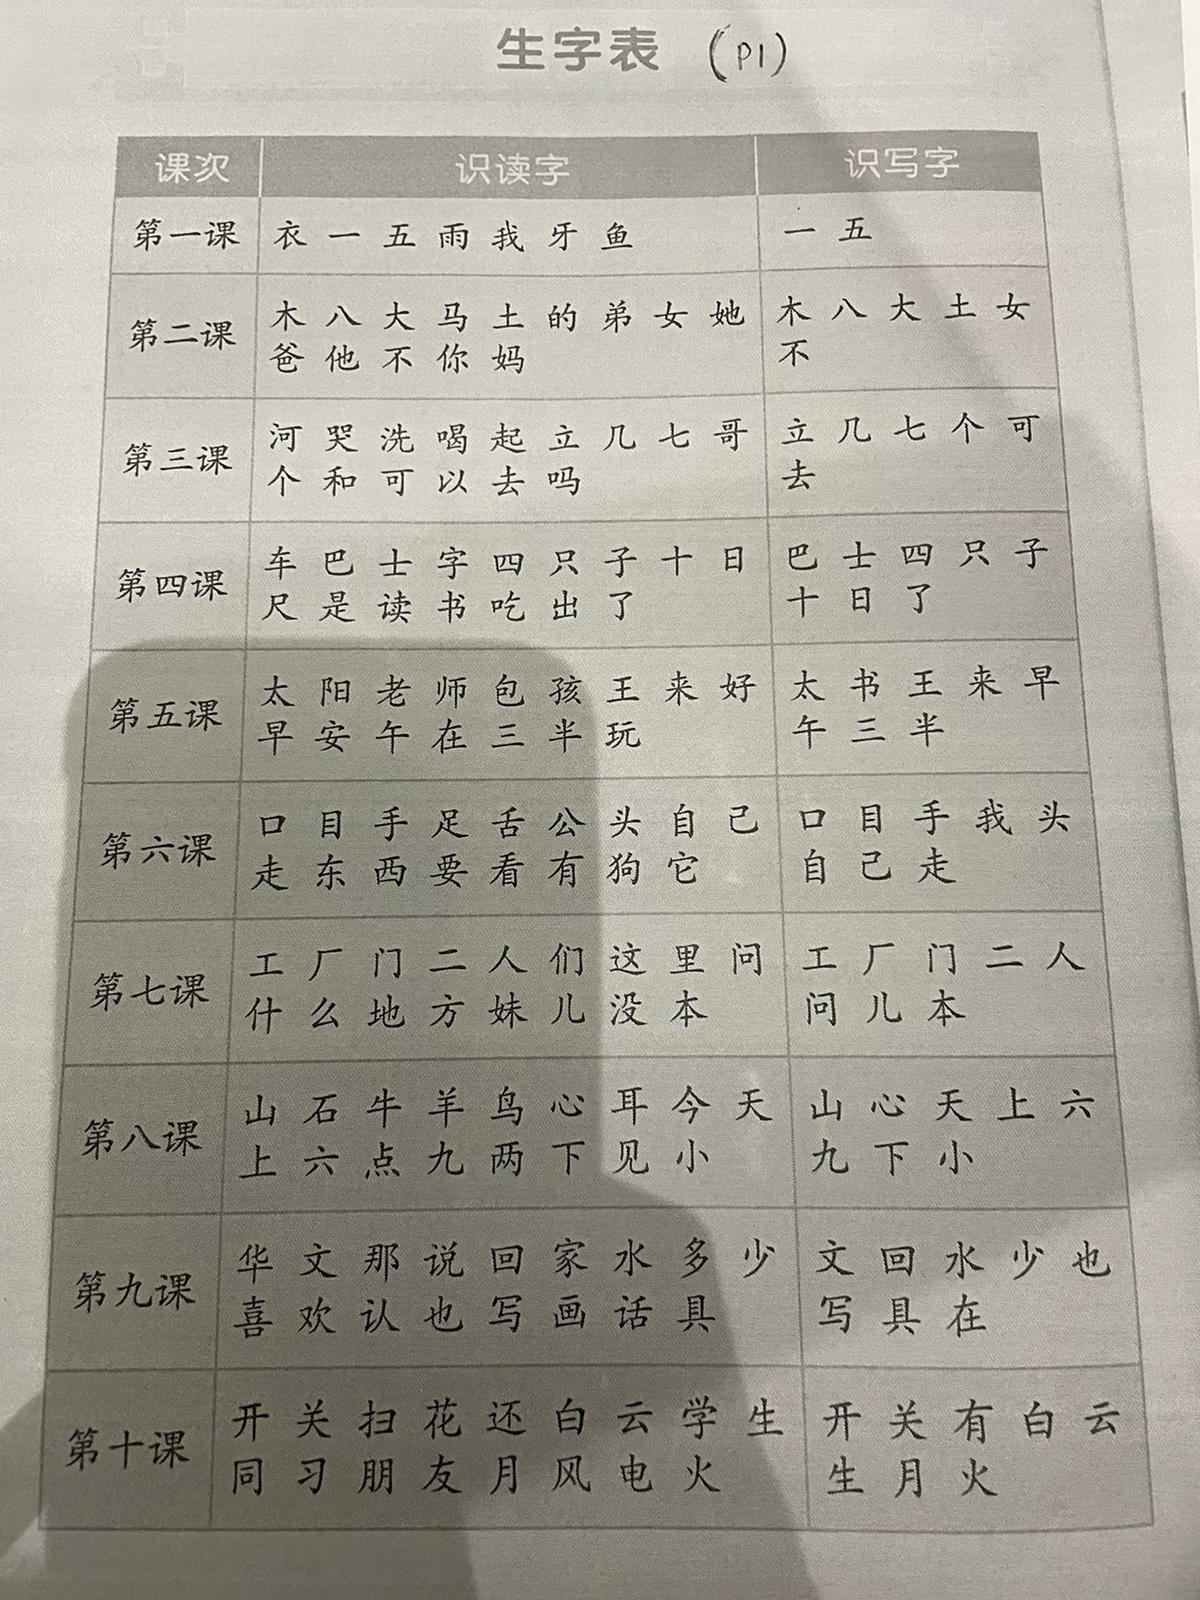 生字表 (P1)
课次 识读字 识写字
第一课 衣 一 五 雨 我 牙 鱼 一 五
第二课 木 八 大 马 土 的 弟 女 她 木 八 大 土 女
爸 他 不 你 妈 不
第三课 河 哭 洗 喝 起 立 几 七 哥 立 几 七 个 可
个 和 可 以 去 吗 去
第四课 车 巴 士 字 四 只 子 十 日 巴 士 四 只 子
尺 是 读 书 吃 出 了 十 日 了
第五课 太 阳 老 师 包 孩 王 来 好 太 书 王 来 早
早 安 午 在 三 半 玩 午 三 半
第六课 口 目 手 足 舌 公 头 自 己 口 目 手 我 头
走 东 西 要 看 有 狗 它 自 己 走
第七课 工 厂 门 二 人 们 这 里 问 工 厂 门 二 人
什 么 地 方 妹 儿 没 本 问 儿 本
第八课 山 石 牛 羊 鸟 心 耳 今 天 山 心 天 上 六
上 六 点 九 两 下 见 小 九 下 小
第九课 华 文 那 说 回 家 水 多 少 文 回 水 少 也
喜 欢 认 也 写 画 话 具 写 具 在
第十课 开 关 扫 花 还 白 云 学 生 开 关 有 白 云
同 习 朋 友 月 风 电 火 生 月 火